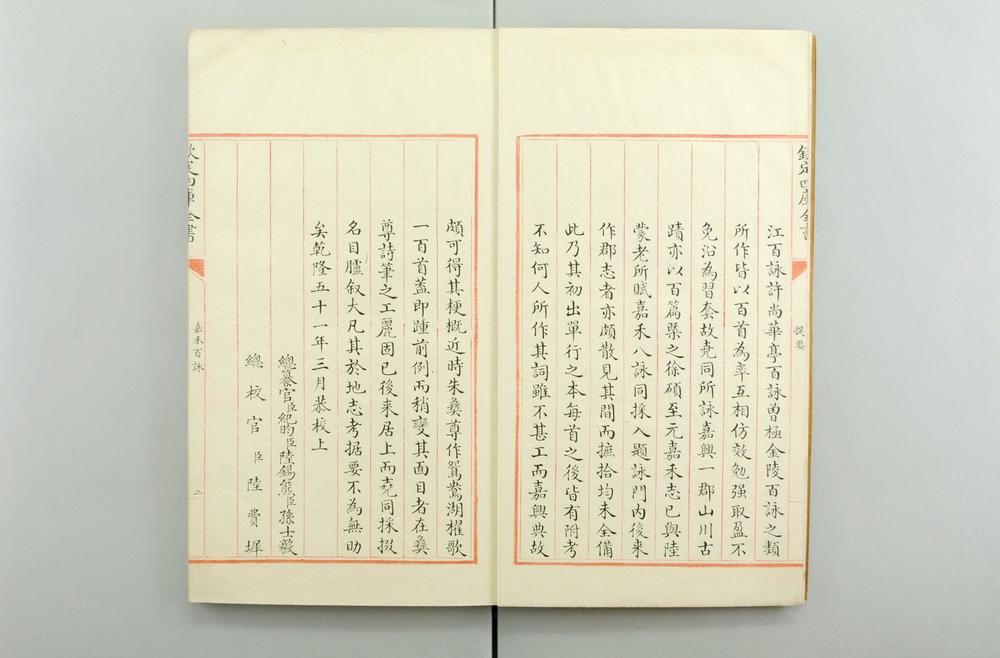 欽定四庫全書
提要
江百詠許尚華亭百詠曾極金陵百詠之類
所作皆以百首為率互相仿效勉强取盈不
免沿為習套故堯同所詠嘉興一郡山川古
蹟亦以百篇槩之徐碩至元嘉禾志已與陸
蒙老所賦嘉禾八詠同採入題詠門内後來
作郡志者亦頗散見其間而摭拾均未全備
此乃其初出單行之本每首之後皆有附考
不知何人所作其詞雖不甚工而嘉興典故
頗可得其梗概近時朱彝尊作鴛鴦湖櫂歌
一百首蓋即踵前例而稍變其面目者在彝
尊詩筆之工麗固已後來居上而堯同採掇
名目臚叙大凡其於地志考据要不為無助
矣乾隆五十一年三月恭校上
總纂官臣紀昀臣陸錫熊臣孫士毅
總校官臣陸費墀
欽定四庫全書
嘉禾百詠
二